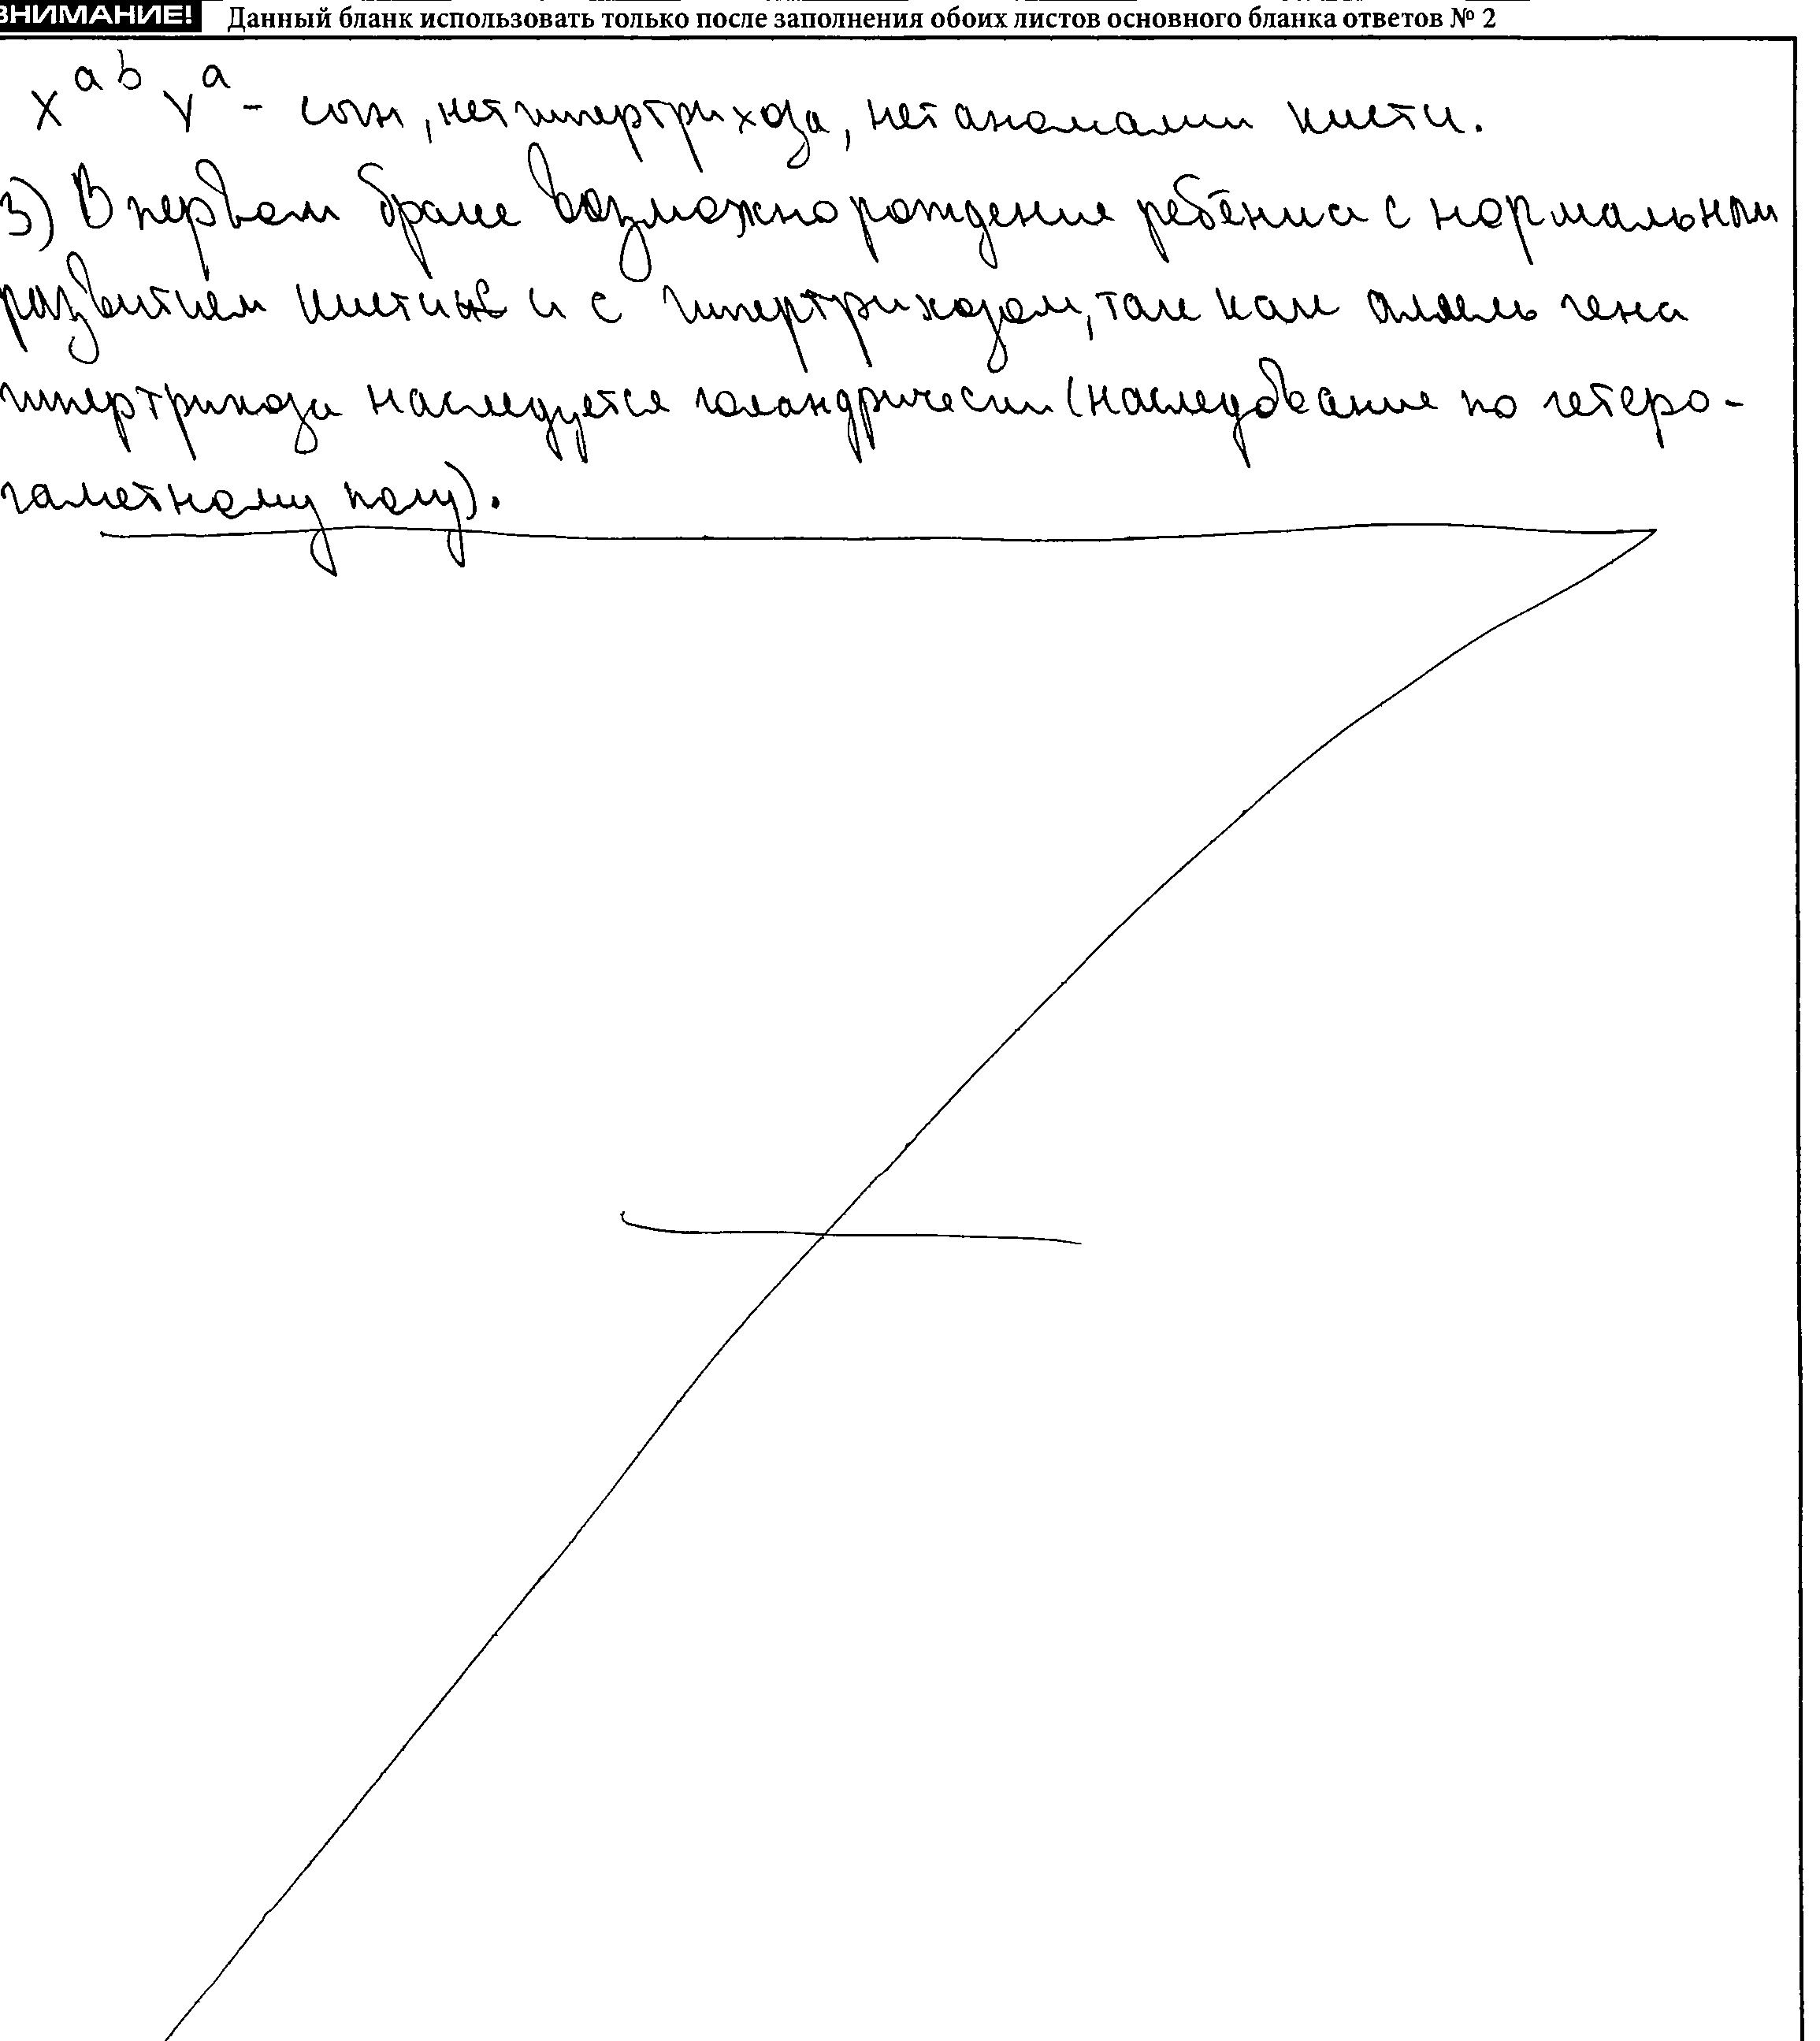 ВНИМАНИЕ! Данный бланк использовать только после заполнения обоих листов основного бланка ответов № 2
X^ab Y^a - сын, нет гипертрихоза, нет аномалии кисти.
3) В первом браке возможно рождение ребёнка с нормальным
развитием кисти и с гипертрихозом, так как аллель гена
гипертрихоза наследуется голандрически (наследование по гетеро-
гаметному полу).